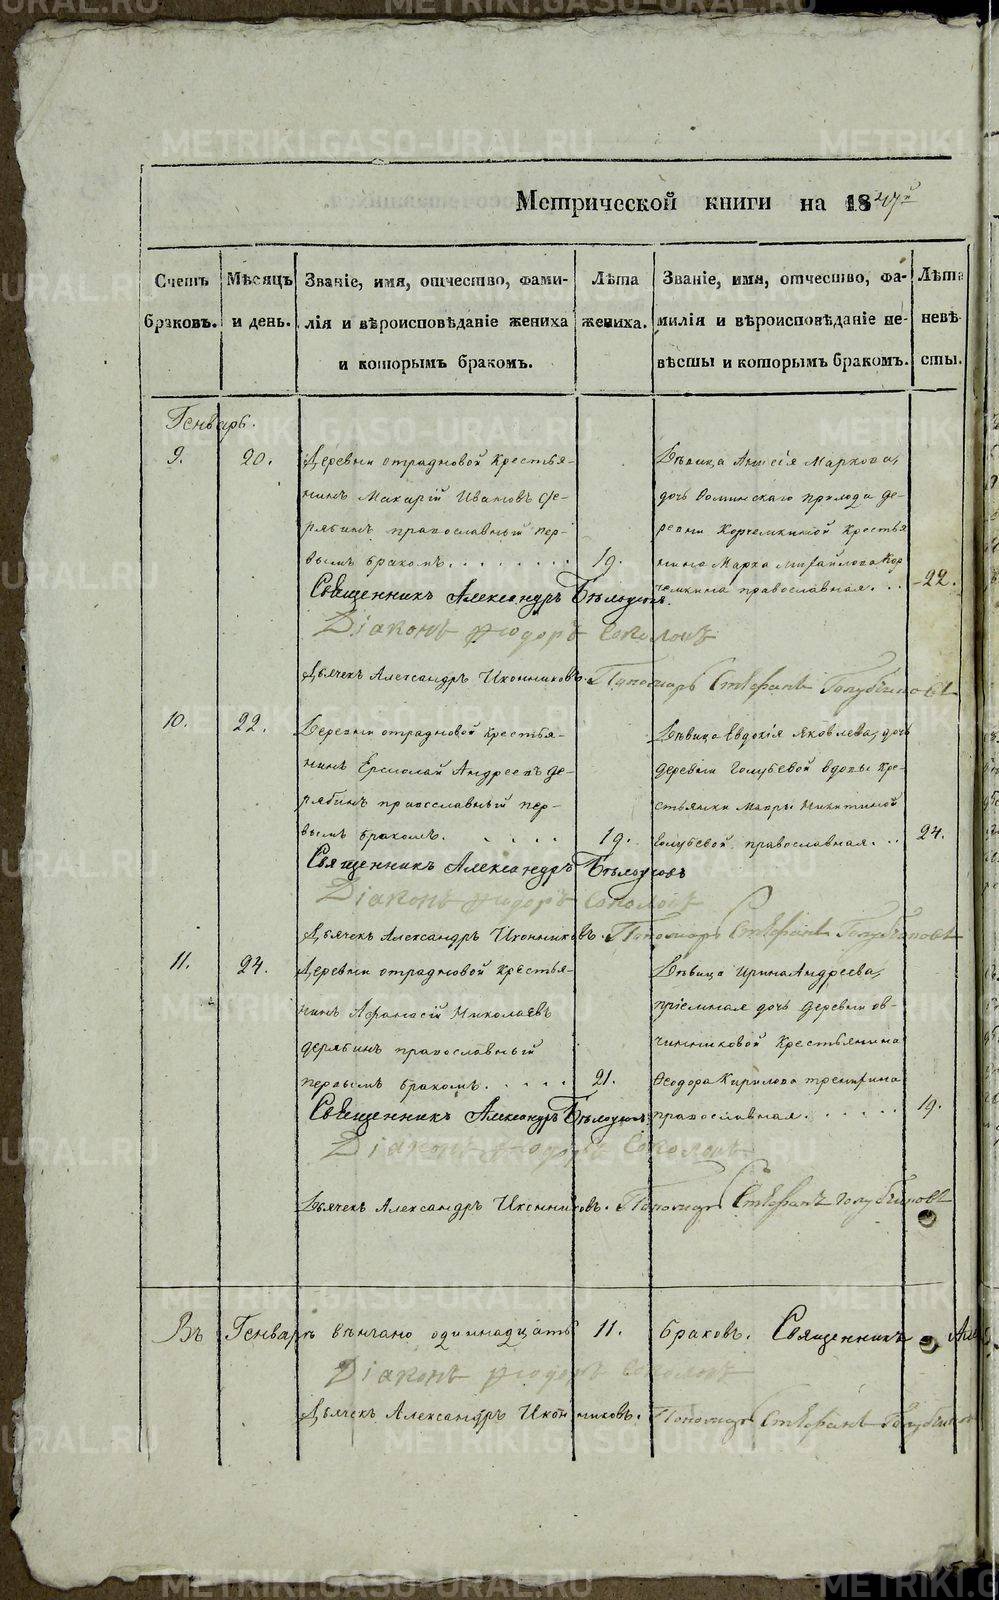 METRIKI.GASO-URAL.RU
Метрической книги на 1847й
Счетъ браковъ.
Мѣсяцъ и день.
Званіе, имя, отчество, фами-
лія и вѣроисповѣданіе жениха
и которымъ бракомъ.
Лѣта
жениха.
Званіе, имя, отчество, фа-
милія и вѣроисповѣданіе не-
вѣсты и которымъ бракомъ.
Лѣта
невѣ-
сты.
Генварь.
9.
20.
Деревни отрадновой крестья-
нинъ Макарій Ивановъ де-
рябинъ православный пер-
вымъ бракомъ.
19.
Дѣвица Анисія Маркова,
дочь приходу де-
ревни Корчемкиной крестья
нина Марка михайлова Кор
чемкина православная.
22.
Священникъ Александръ Бѣлоусовъ.
Діаконъ Ѳеодоръ Соколовъ
Дьячекъ Александръ Иконниковъ. Пономарь Стефанъ
10.
22.
Деревни отрадновой крестья-
нинъ Ермолай Андреевъ де-
рябинъ православный пер-
вымъ бракомъ.
19.
Дѣвица Евдокія Яковлева, дочь
деревни Голубевой вдовы кре-
стьянки Мавры Никитиной
Голубевой православная.
24.
Священникъ Александръ Бѣлоусовъ
Діаконъ Ѳеодоръ Соколовъ
Дьячекъ Александръ Иконниковъ. Пономарь Стефанъ
11.
24.
Деревни отрадновой крестья-
нинъ Афанасій Николаевъ
дерябинъ православный
первымъ бракомъ.
21.
Дѣвица Ирина Андреева,
пріемная дочь деревни ов-
чинниковой крестьянина
Ѳеодора Кирилова
православная.
19.
Священникъ Александръ Бѣлоусовъ
Діаконъ Ѳеодоръ Соколовъ
Дьячекъ Александръ Иконниковъ. Пономарь Стефанъ
Въ Генварѣ вѣнчано одиннадцать 11. браковъ. Священникъ
Діаконъ Ѳеодоръ Соколовъ
Дьячекъ Александръ Иконниковъ. Пономарь Стефанъ